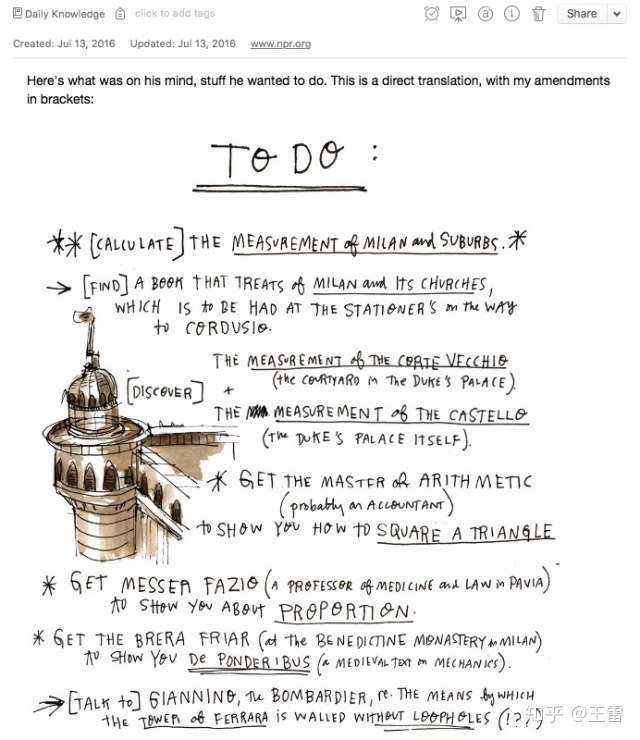 Daily Knowledge click to add tags Share
Created: Jul 13, 2016 Updated: Jul 13, 2016 www.npr.org
Here's what was on his mind, stuff he wanted to do. This is a direct translation, with my amendments
in brackets:
TO DO :
** [CALCULATE] THE MEASUREMENT of MILAN and SUBURBS. *
→ [FIND] A BOOK THAT TREATS of MILAN and ITS CHURCHES,
WHICH IS to BE HAD AT THE STATIONER'S on the WAY
to CORDUSIO.
THE MEASUREMENT of THE CORTE VECCHIO
(the COURTYARD in THE DUKE'S PALACE).
[DISCOVER] +
THE MEASUREMENT of THE CASTELLO
(the DUKE'S PALACE ITSELF).
* GET THE MASTER of ARITHMETIC
(probably an ACCOUNTANT)
to SHOW YOU HOW TO SQUARE A TRIANGLE
* GET MESSER FAZIO (A PROFESSOR of MEDICINE and LAW in PAVIA)
to SHOW YOU ABOUT PROPORTION.
* GET THE BRERA FRIAR (at the BENEDICTINE MONASTERY in MILAN)
to SHOW YOU De PONDERIBUS (a MEDIEVAL TEXT on MECHANICS).
→ [TALK to] GIANNINO, the BOMBARDIER, re. THE MEANS by WHICH
the TOWER of FERRARA is WALLED WITHOUT LOOPHOLES (!??)
知乎 @王雷